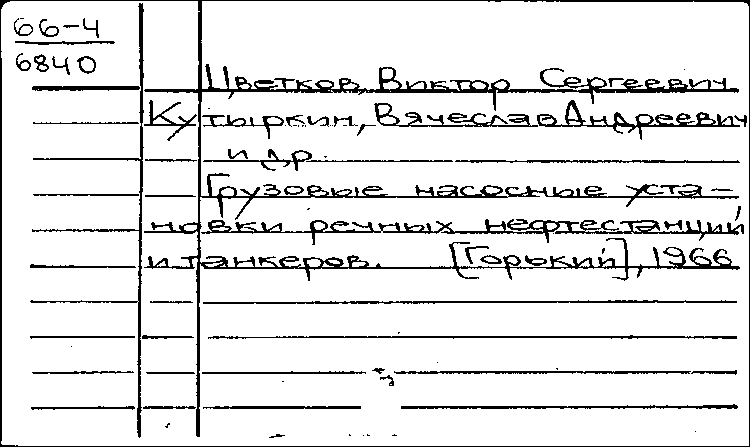 66-4
6840
Цветков, Виктор Сергеевич
Кутыркин, Вячеслав Андреевич
и др.
Грузовые насосные уста-
новки речных нефтестанций
и танкеров. [Горький], 1966